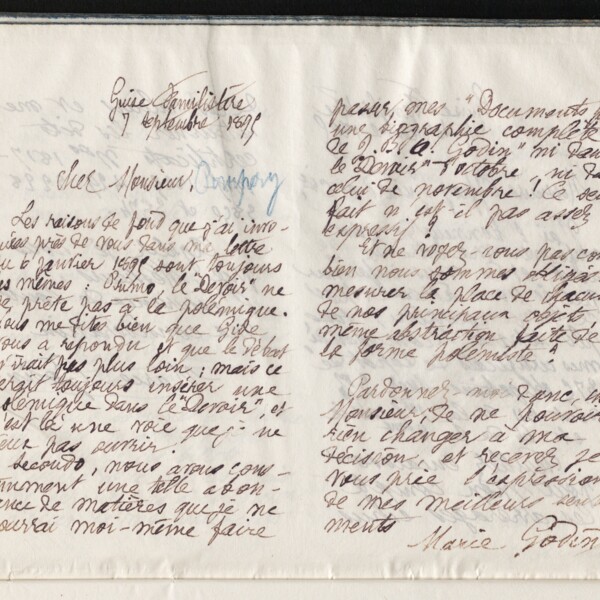 Guise Familistère
7 septembre 1895
Cher Monsieur,
Les raisons de fond que j'ai invo-
quées près de vous dans ma lettre
du 6 janvier 1895 sont toujours
les mêmes : Primo, le "Devoir" ne
se prête pas à la polémique.
Vous me dites bien que Gide
vous a répondu et que le débat
n'irait pas plus loin ; mais ce
serait toujours insérer une
polémique dans le "Devoir", et
c'est là une voie que je ne
veux pas ouvrir.
Secundo, nous avons cons-
tamment une telle abon-
dance de matières que je ne
pourrai moi-même faire
passer mes "Documents
une biographie complète
de J. Bte A. Godin" ni dans
le "Devoir" d'octobre, ni da
celui de novembre ! Ce seul
fait n'est-il pas assez
expressif ?
Et ne voyez-vous pas com
bien nous sommes obligés
mesurer la place de chacun
de nos principaux objets
même abstraction faite de
la forme polémiste ?
Pardonnez-moi donc,
Monsieur, de ne pouvoir
rien changer à ma
décision, et recevez, je
vous prie l'expression
de mes meilleurs senti
ments
Marie Godin